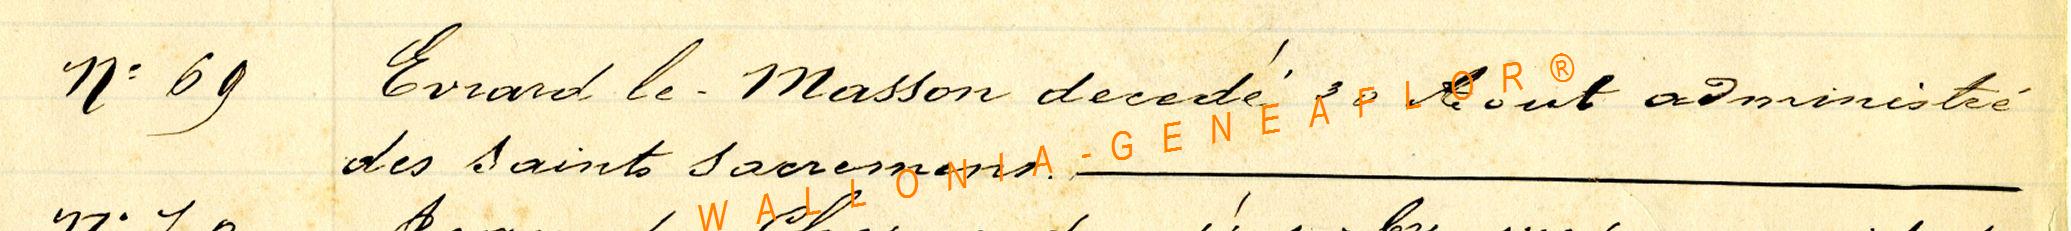 N° 69 Evrard le-Masson decedé 30 Aout administré
des saints sacremens.
N° 70
WALLONIA-GENEAPLOR®